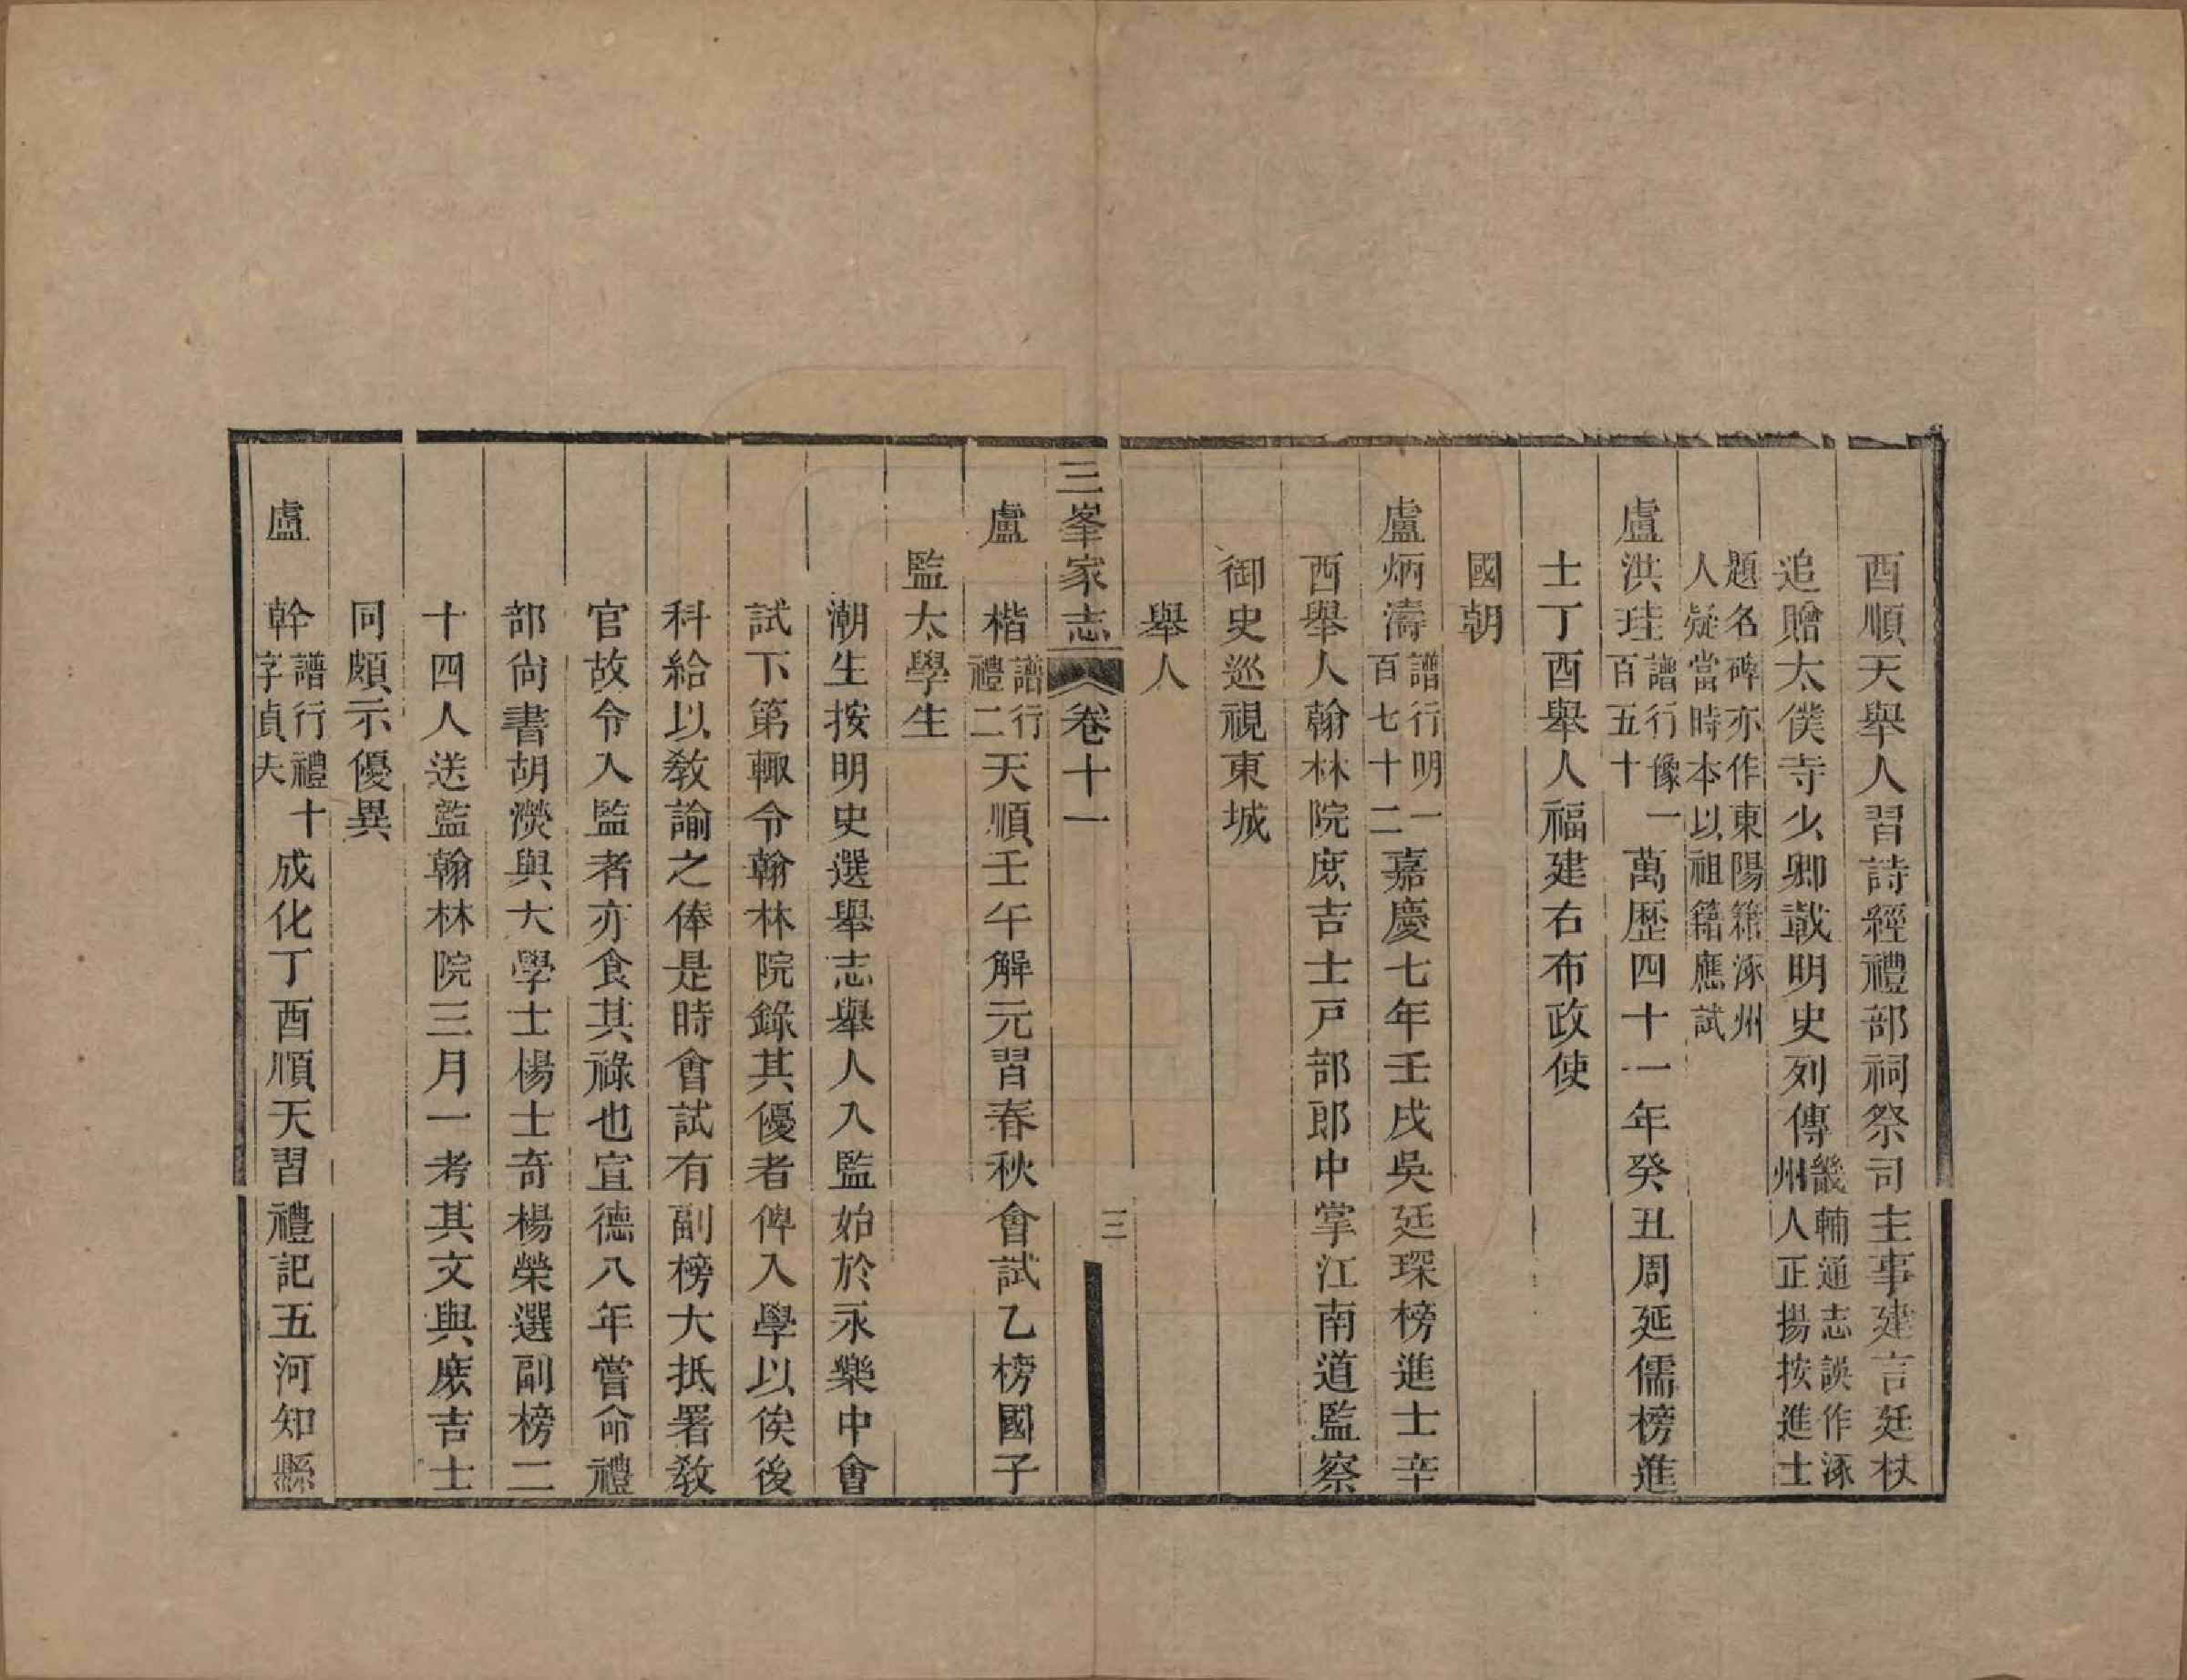 酉順天舉人習詩經禮部祠祭司主事建言廷杖
追贈太僕寺少卿載明史列傳畿輔通志誤作涿州人正揚按進士
題名碑亦作東陽籍涿州人疑當時本以祖籍應試
盧洪珪譜行豫一百五十萬歷四十一年癸丑周延儒榜進
士丁酉舉人福建右布政使
國朝
盧炳濤譜行明一百七十二嘉慶七年壬戌吳廷琛榜進士辛
酉舉人翰林院庶吉士戸部郎中掌江南道監察
御史巡視東城
舉人
三峯家志 卷十一 三
盧楷譜行禮二天順壬午解元習春秋會試乙榜國子
監太學生
潮生按明史選舉志舉人入監始於永樂中會
試下第輒令翰林院錄其優者俾入學以俟後
科給以敎諭之俸是時會試有副榜大抵署敎
官故令入監者亦食其祿也宣德八年嘗命禮
部尙書胡濙與大學士楊士奇楊榮選副榜二
十四人送監翰林院三月一考其文與庶吉士
同頗示優異
盧幹譜行禮十字貞夫成化丁酉順天習禮記五河知縣